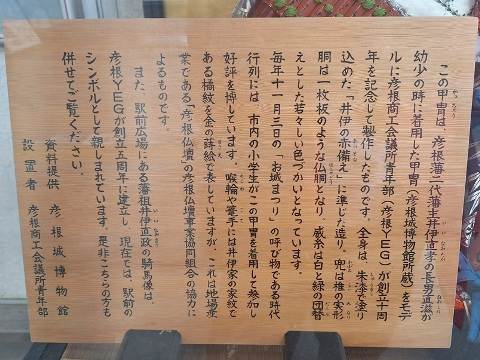 この甲冑は、彦根藩二代藩主井伊直孝の長男直滋が
幼少の時に着用した甲冑(彦根城博物館所蔵)をモデ
ルに彦根商工会議所青年部(彦根YEG)が創立十周
年を記念して製作したものです。全身は、朱漆で塗り
込めた「井伊の赤備え」に準じた造り、兜は椎の実形
胴は一枚板のような仏胴となり、威糸は白と緑の団替
えとした若々しい色づかいとなっています。
毎年十一月三日の「お城まつり」の呼び物である時代
行列には、市内の小学生がこの甲冑を着用して参加し
好評を博しています。喉輪や篭手には井伊家の家紋で
ある橘紋を金の蒔絵で表していますが、これは地場産
業である「彦根仏壇」の彦根仏壇事業協同組合の協力に
よるものです。
また、駅前広場にある藩祖井伊直政の騎馬像は、
彦根YEGが創立五周年に建立し、現在では、駅前の
シンボルとして親しまれています。是非こちらの方も
併せてご覧ください。
資料提供 彦根城博物館
設置者 彦根商工会議所青年部